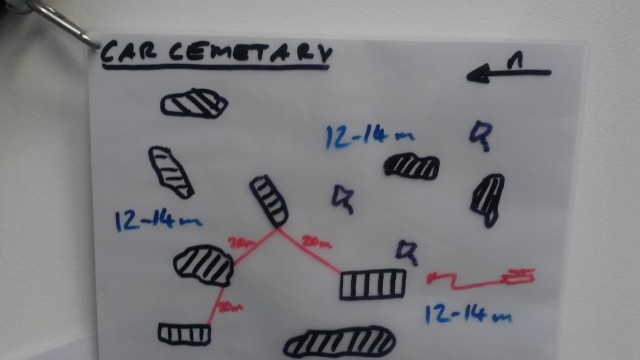 CAR CEMETARY
n
12-14m
12-14m
20m 20m
20m
12-14m